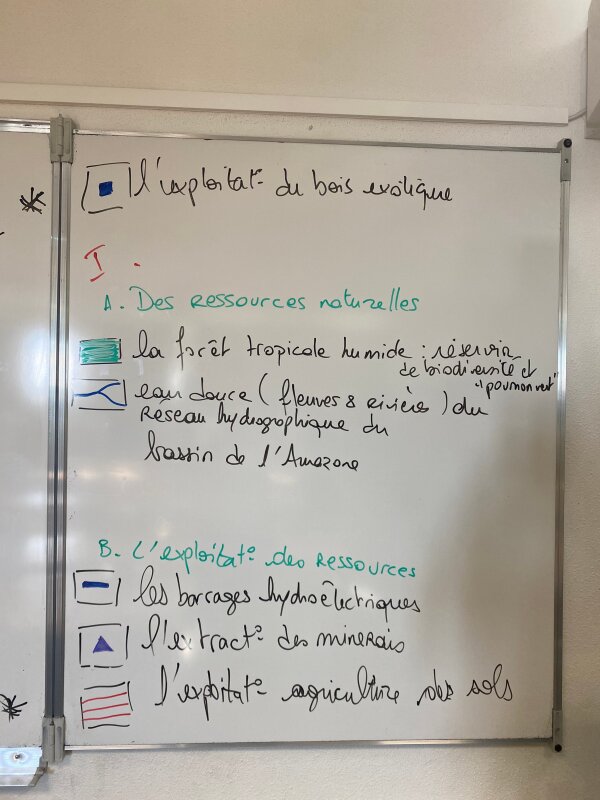 l'exploitat° du bois exotique
I.
A. Des ressources naturelles
la forêt tropicale humide : réservoir
de biodiversité et
"poumon vert"
eau douce (fleuves & rivière) du
Réseau hydrographique du
bassin de l'Amazone
B. L'exploitat° des Ressources
les barrages hydroélectriques
l'extract° des minerais
l'exploitat° agriculture des sols